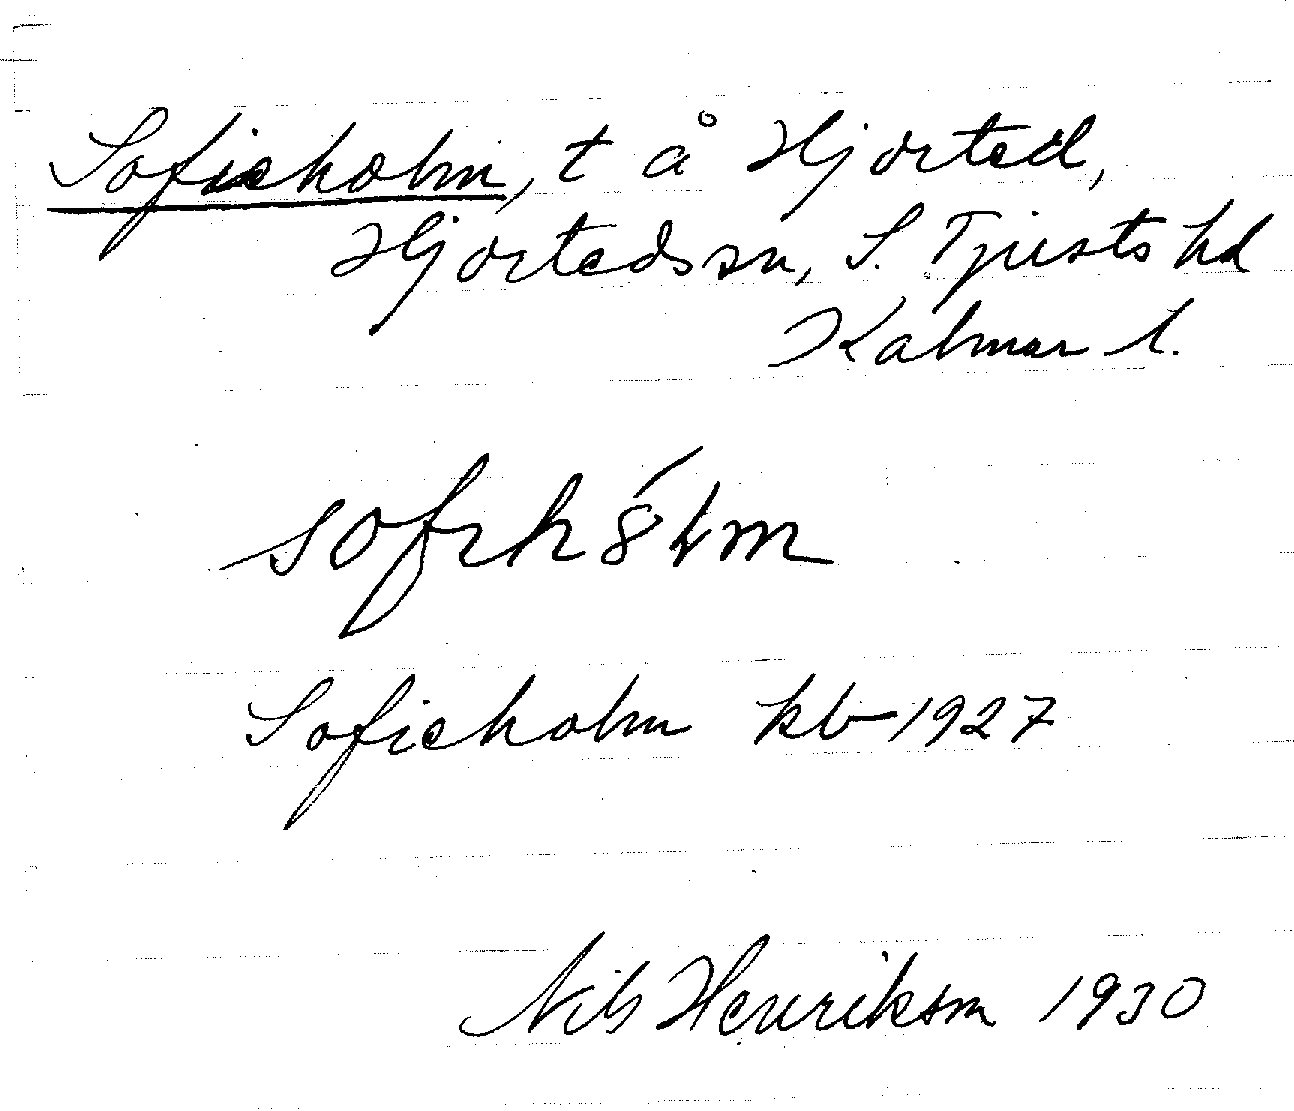 Sofieholm, t å Hjorted,
Hjorteds sn, S. Tjusts hd
Kalmar l.
Sofieholm kb 1927
Nils Henrikson 1930